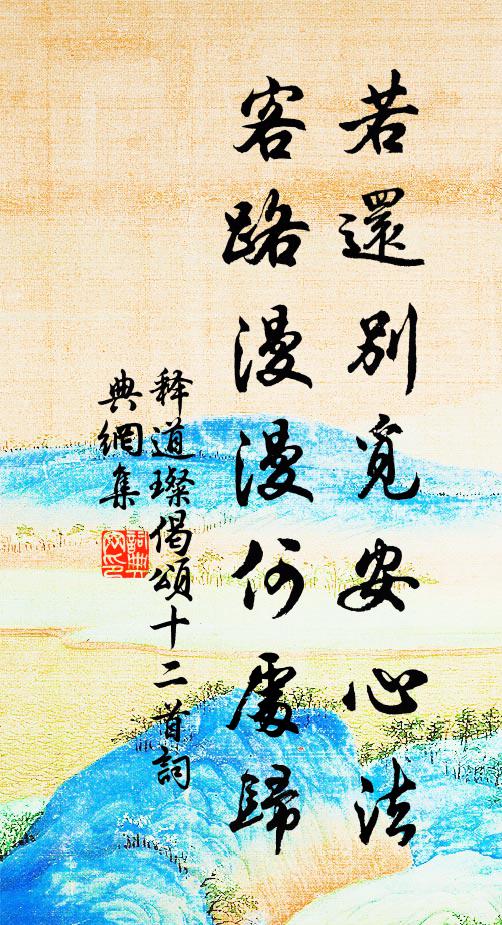 若還別覓安心法
客路漫漫何處歸
释道璨偈頌十二首詞
典網集
詞典